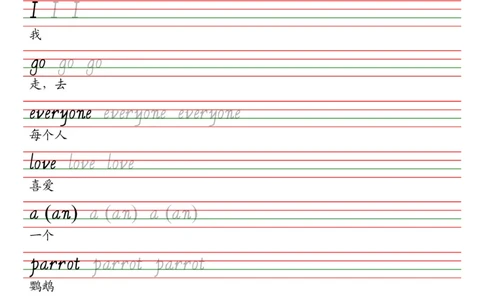 I I I
我
go go go
走，去
everyone everyone everyone
每个人
love love love
喜爱
a (an) a (an) a (an)
一个
parrot parrot parrot
鹦鹉